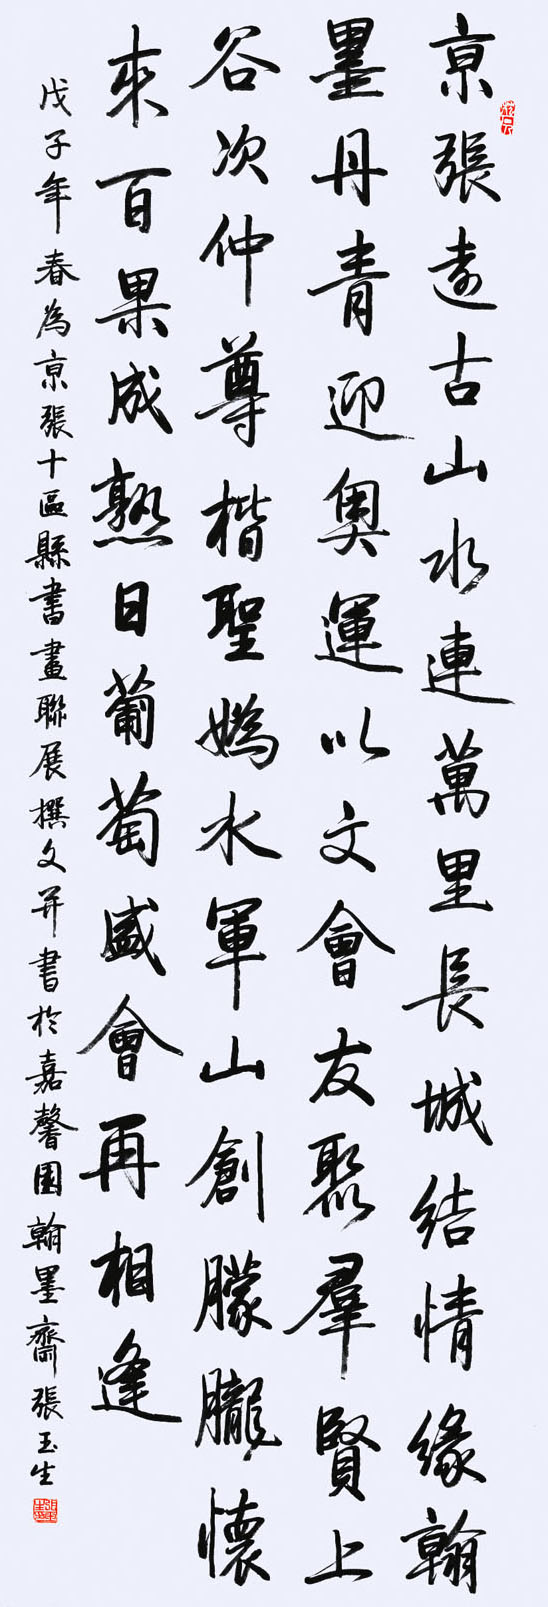 京張遠古山水連萬里長城結情緣翰
墨丹青迎奧運以文會友聚羣賢上
谷次仲尊楷聖媯水軍山創朦朧懷
來百果成熟日葡萄盛會再相逢
戊子年春為京張十區縣書畫聯展撰文并書於嘉馨園翰墨齋張玉生